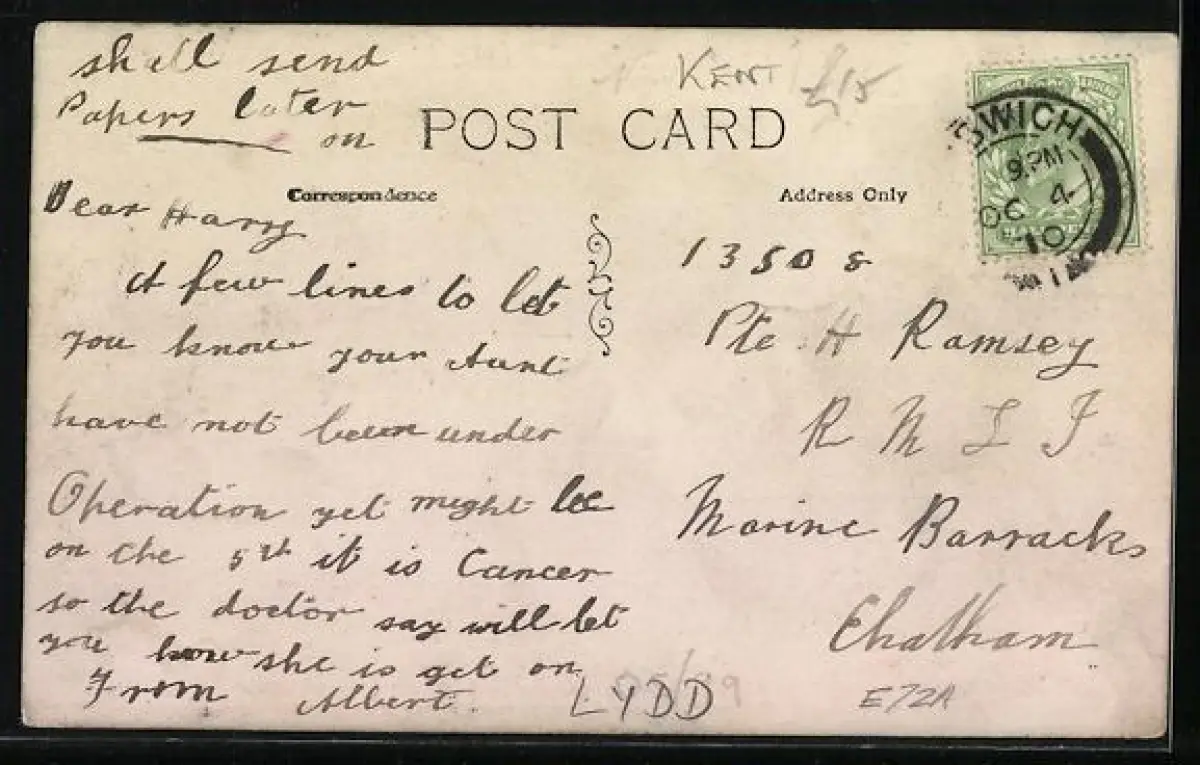 shall send
Papers later
on
KENT £15
POST CARD
Correspondence
Address Only
SWICH
9. PM
OC 4
10
Dear Harry
A few lines to let
you know your Aunt
have not been under
Operation yet might be
on the 5th it is Cancer
so the doctor say will let
you know she is get on
From Albert.
13508
Pte H Ramsey
R M L I
Marine Barracks
Chatham
LYDD
E72A